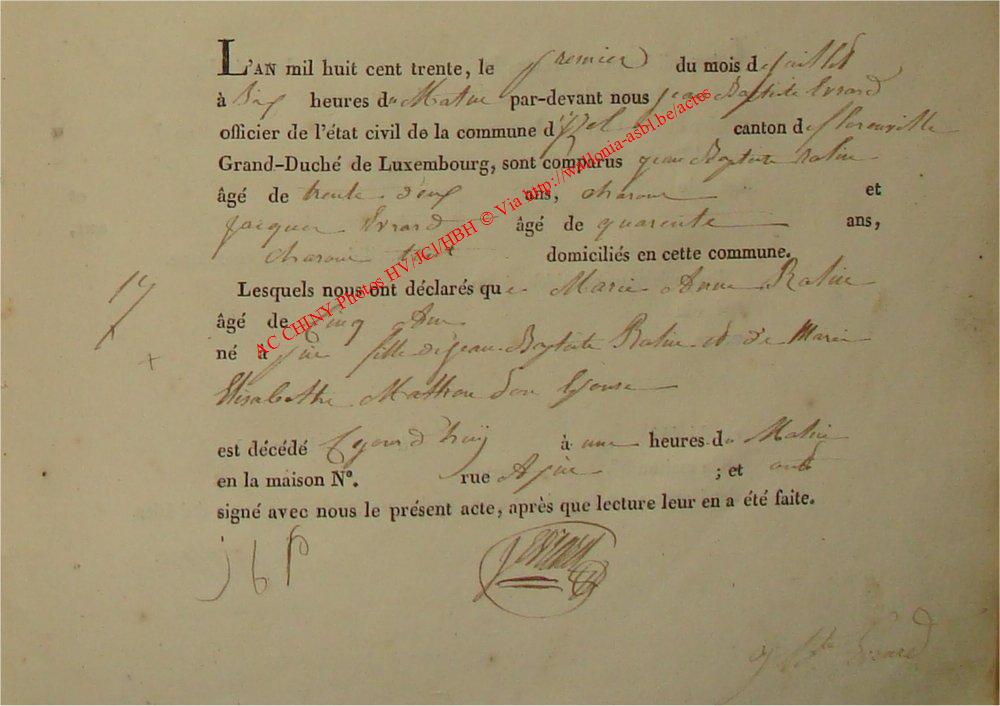 L'AN mil huit cent trente, le premier du mois de juillet
à Dix heures du Matin par-devant nous jean Baptiste Evrard
officier de l'état civil de la commune d'izel canton de florenville
Grand-Duché de Luxembourg, sont comparus jean Baptiste Ralin
âgé de trente deux ans, et
jacques Evrard âgé de quarente ans,
domiciliés en cette commune.
Lesquels nous ont déclarés que Marie Anne Ralin
âgé de cinq Ans
né à fille de jean Baptiste Ralin et de Marie
Elisabethe Mathieu Son Epouse
est décédé à une heures du Matin
en la maison N°. rue ; et ont
signé avec nous le présent acte, après que lecture leur en a été faite.
17
+
j b R
jEvrard
j Bte Evrard
AC CHINY Photos HV/JCl/HBH © Via http://wallonia-asbl.be/actes